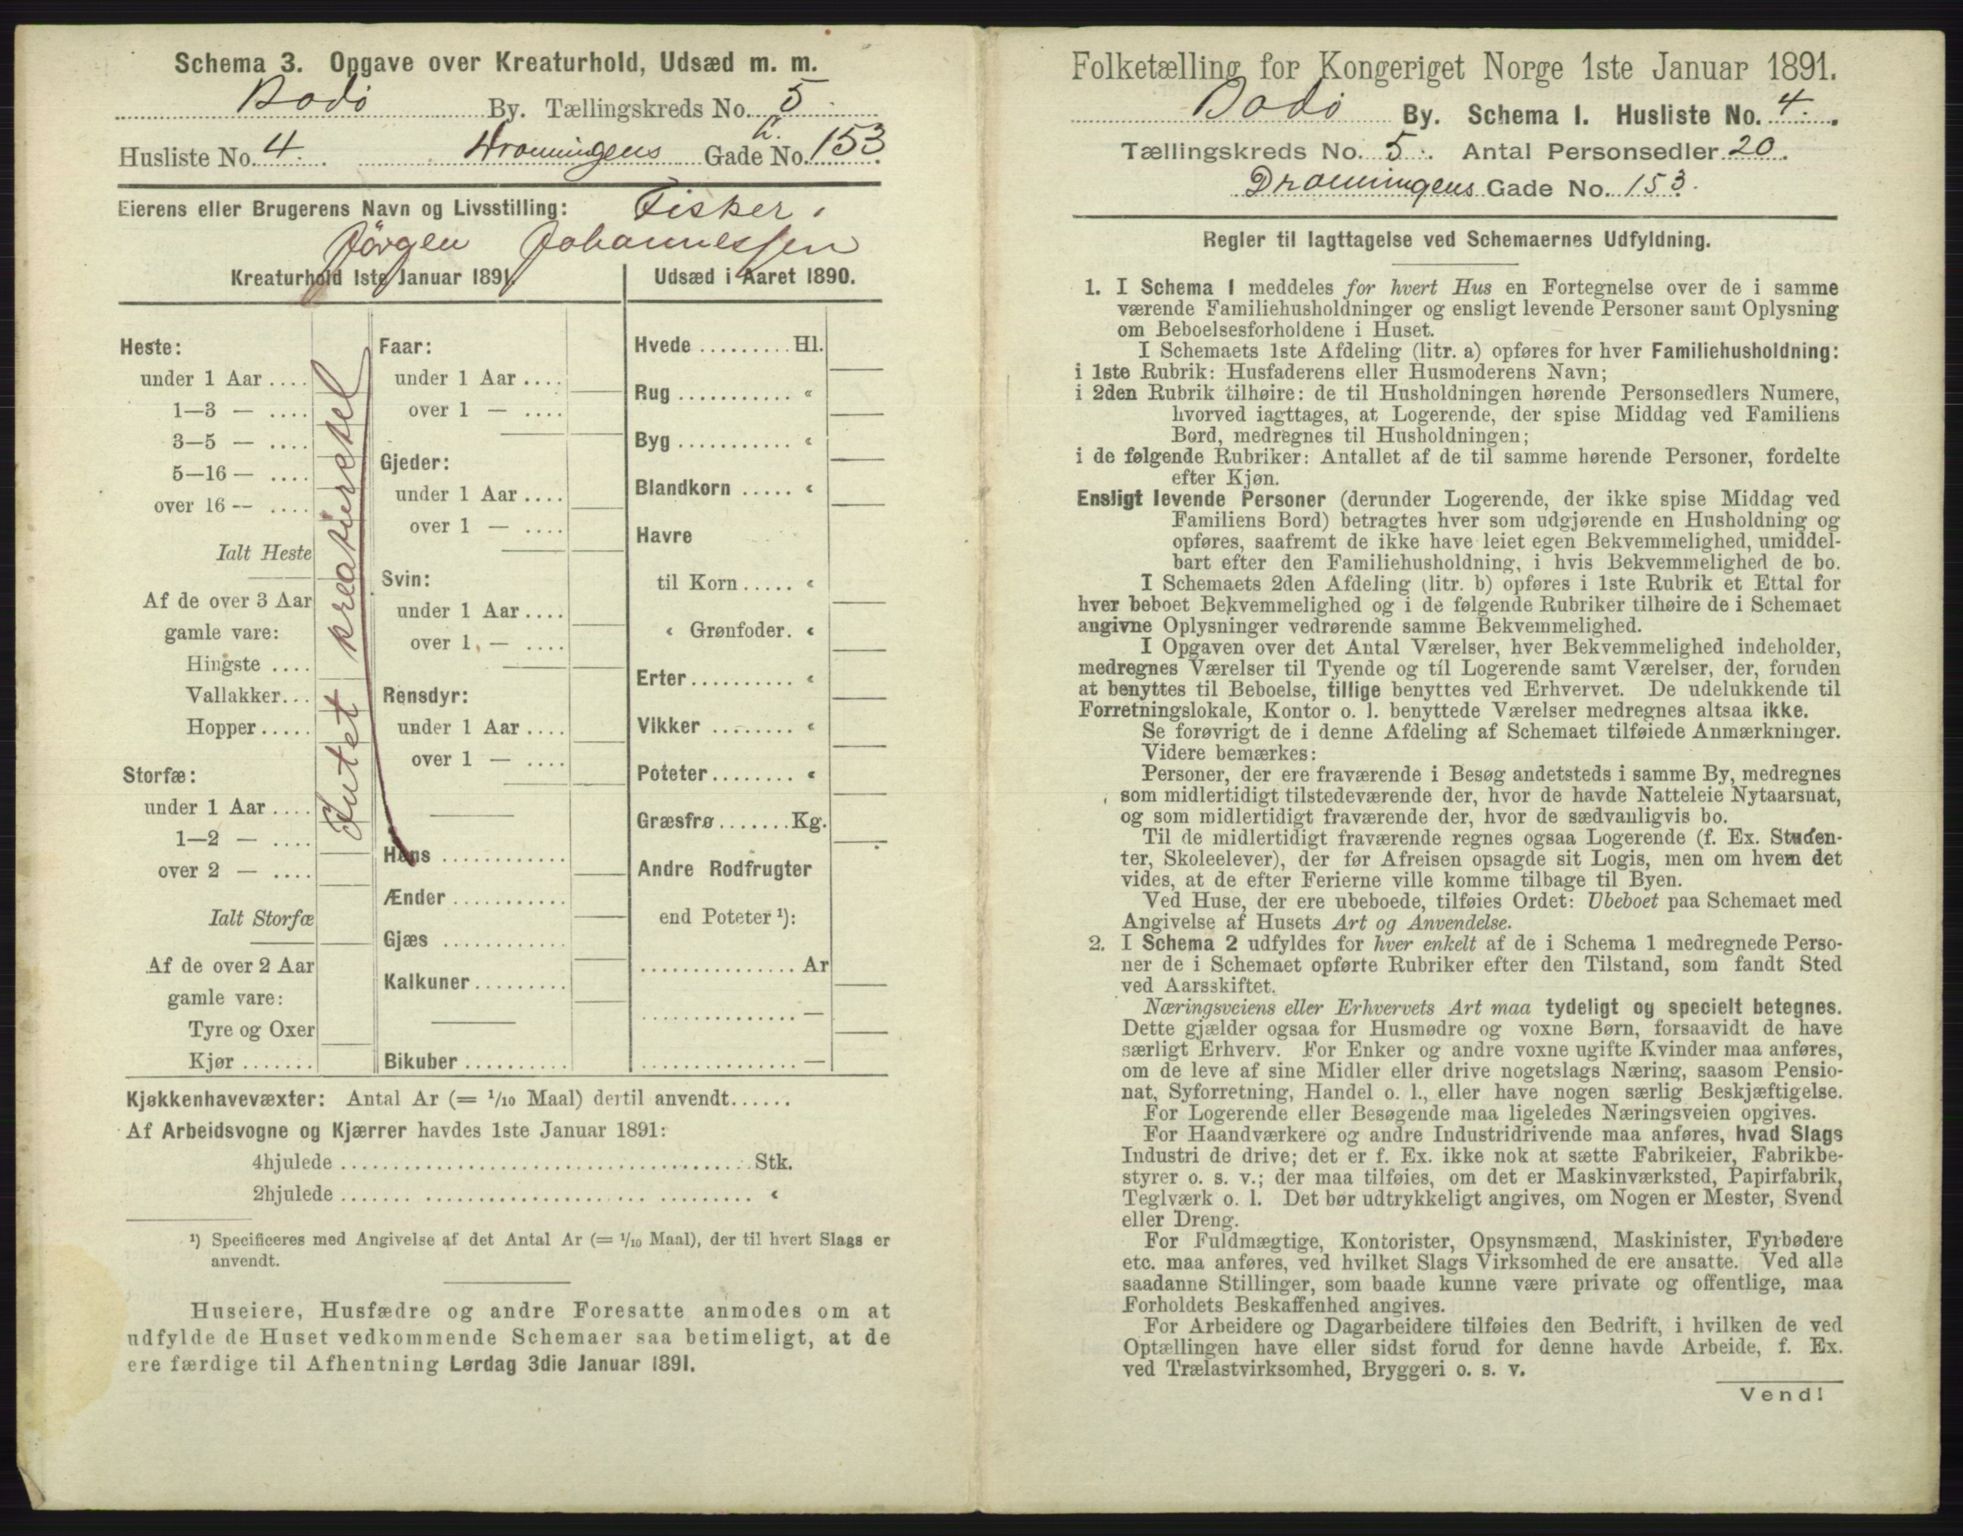 Schema 3. Opgave over Kreaturhold, Udsæd m. m.
Bodö By. Tællingskreds No. 5.
Husliste No. 4. Dronningens Gade No. 153.
Eierens eller Brugerens Navn og Livsstilling: Fisker
Jörgen Johannessen
Kreaturhold 1ste Januar 1891.
Heste:
under 1 Aar ....
1—3 — ....
3—5 — ....
5—16 — ....
over 16 — ....
Ialt Heste
Af de over 3 Aar
gamle vare:
Hingste ....
Vallakker...
Hopper.....
Storfæ:
under 1 Aar ....
1—2 — ....
over 2 — ....
Ialt Storfæ
Af de over 2 Aar
gamle vare:
Tyre og Oxer
Kjør.......
Intet kreaturehel
Faar:
under 1 Aar ....
over 1 — ....
Gjeder:
under 1 Aar ....
over 1 — ....
Svin:
under 1 Aar ....
over 1 — ....
Rensdyr:
under 1 Aar ....
over 1 — ....
Høns ............
Ænder ...........
Gjæs ............
Kalkuner.........
Bikuber ..........
Udsæd i Aaret 1890.
Hvede ......... Hl.
Rug ........... «
Byg ........... «
Blandkorn ..... «
Havre
til Korn..... «
« Grønfoder. «
Erter.......... «
Vikker ........ «
Poteter........ «
Græsfrø....... Kg.
Andre Rodfrugter
end Poteter ¹):
............... Ar
............... —
............... —
Kjøkkenhavevæxter: Antal Ar (= 1/10 Maal) dertil anvendt......
Af Arbeidsvogne og Kjærrer havdes 1ste Januar 1891:
4hjulede ........................................ Stk.
2hjulede ........................................ «
¹) Specificeres med Angivelse af det Antal Ar (= 1/10 Maal), der til hvert Slags er
anvendt.
Huseiere, Husfædre og andre Foresatte anmodes om at
udfylde de Huset vedkommende Schemaer saa betimeligt, at de
ere færdige til Afhentning Lørdag 3die Januar 1891.
Folketælling for Kongeriget Norge 1ste Januar 1891.
Bodö By. Schema 1. Husliste No. 4.
Tællingskreds No. 5. Antal Personsedler 20.
Dronningens Gade No. 153.
Regler til Iagttagelse ved Schemaernes Udfyldning.
1. I Schema 1 meddeles for hvert Hus en Fortegnelse over de i samme
værende Familiehusholdninger og ensligt levende Personer samt Oplysning
om Beboelsesforholdene i Huset.
I Schemaets 1ste Afdeling (litr. a) opføres for hver Familiehusholdning:
i 1ste Rubrik: Husfaderens eller Husmoderens Navn;
i 2den Rubrik tilhøire: de til Husholdningen hørende Personsedlers Numere,
hvorved iagttages, at Logerende, der spise Middag ved Familiens
Bord, medregnes til Husholdningen;
i de følgende Rubriker: Antallet af de til samme hørende Personer, fordelte
efter Kjøn.
Ensligt levende Personer (derunder Logerende, der ikke spise Middag ved
Familiens Bord) betragtes hver som udgjørende en Husholdning og
opføres, saafremt de ikke have leiet egen Bekvemmelighed, umiddel-
bart efter den Familiehusholdning, i hvis Bekvemmelighed de bo.
I Schemaets 2den Afdeling (litr. b) opføres i 1ste Rubrik et Ettal for
hver beboet Bekvemmelighed og i de følgende Rubriker tilhøire de i Schemaet
angivne Oplysninger vedrørende samme Bekvemmelighed.
I Opgaven over det Antal Værelser, hver Bekvemmelighed indeholder,
medregnes Værelser til Tyende og til Logerende samt Værelser, der, foruden
at benyttes til Beboelse, tillige benyttes ved Erhvervet. De udelukkende til
Forretningslokale, Kontor o. l. benyttede Værelser medregnes altsaa ikke.
Se forøvrigt de i denne Afdeling af Schemaet tilføiede Anmærkninger.
Videre bemærkes:
Personer, der ere fraværende i Besøg andetsteds i samme By, medregnes
som midlertidigt tilstedeværende der, hvor de havde Natteleie Nytaarsnat,
og som midlertidigt fraværende der, hvor de sædvanligvis bo.
Til de midlertidigt fraværende regnes ogsaa Logerende (f. Ex. Studen-
ter, Skoleelever), der før Afreisen opsagde sit Logis, men om hvem det
vides, at de efter Ferierne ville komme tilbage til Byen.
Ved Huse, der ere ubeboede, tilføies Ordet: Ubeboet paa Schemaet med
Angivelse af Husets Art og Anvendelse.
2. I Schema 2 udfyldes for hver enkelt af de i Schema 1 medregnede Perso-
ner de i Schemaet opførte Rubriker efter den Tilstand, som fandt Sted
ved Aarsskiftet.
Næringsveiens eller Erhvervets Art maa tydeligt og specielt betegnes.
Dette gjælder ogsaa for Husmødre og voxne Børn, forsaavidt de have
særligt Erhverv. For Enker og andre voxne ugifte Kvinder maa anføres,
om de leve af sine Midler eller drive nogetslags Næring, saasom Pensio-
nat, Syforretning, Handel o. l., eller have nogen særlig Beskjæftigelse.
For Logerende eller Besøgende maa ligeledes Næringsveien opgives.
For Haandværkere og andre Industridrivende maa anføres, hvad Slags
Industri de drive; det er f. Ex. ikke nok at sætte Fabrikeier, Fabrikbe-
styrer o. s. v.; der maa tilføies, om det er Maskinværksted, Papirfabrik,
Teglværk o. l. Det bør udtrykkeligt angives, om Nogen er Mester, Svend
eller Dreng.
For Fuldmægtige, Kontorister, Opsynsmænd, Maskinister, Fyrbødere
etc. maa anføres, ved hvilket Slags Virksomhed de ere ansatte. Ved alle
saadanne Stillinger, som baade kunne være private og offentlige, maa
Forholdets Beskaffenhed angives.
For Arbeidere og Dagarbeidere tilføies den Bedrift, i hvilken de ved
Optællingen have eller sidst forud for denne havde Arbeide, f. Ex.
ved Trælastvirksomhed, Bryggeri o. s. v.
Vend!